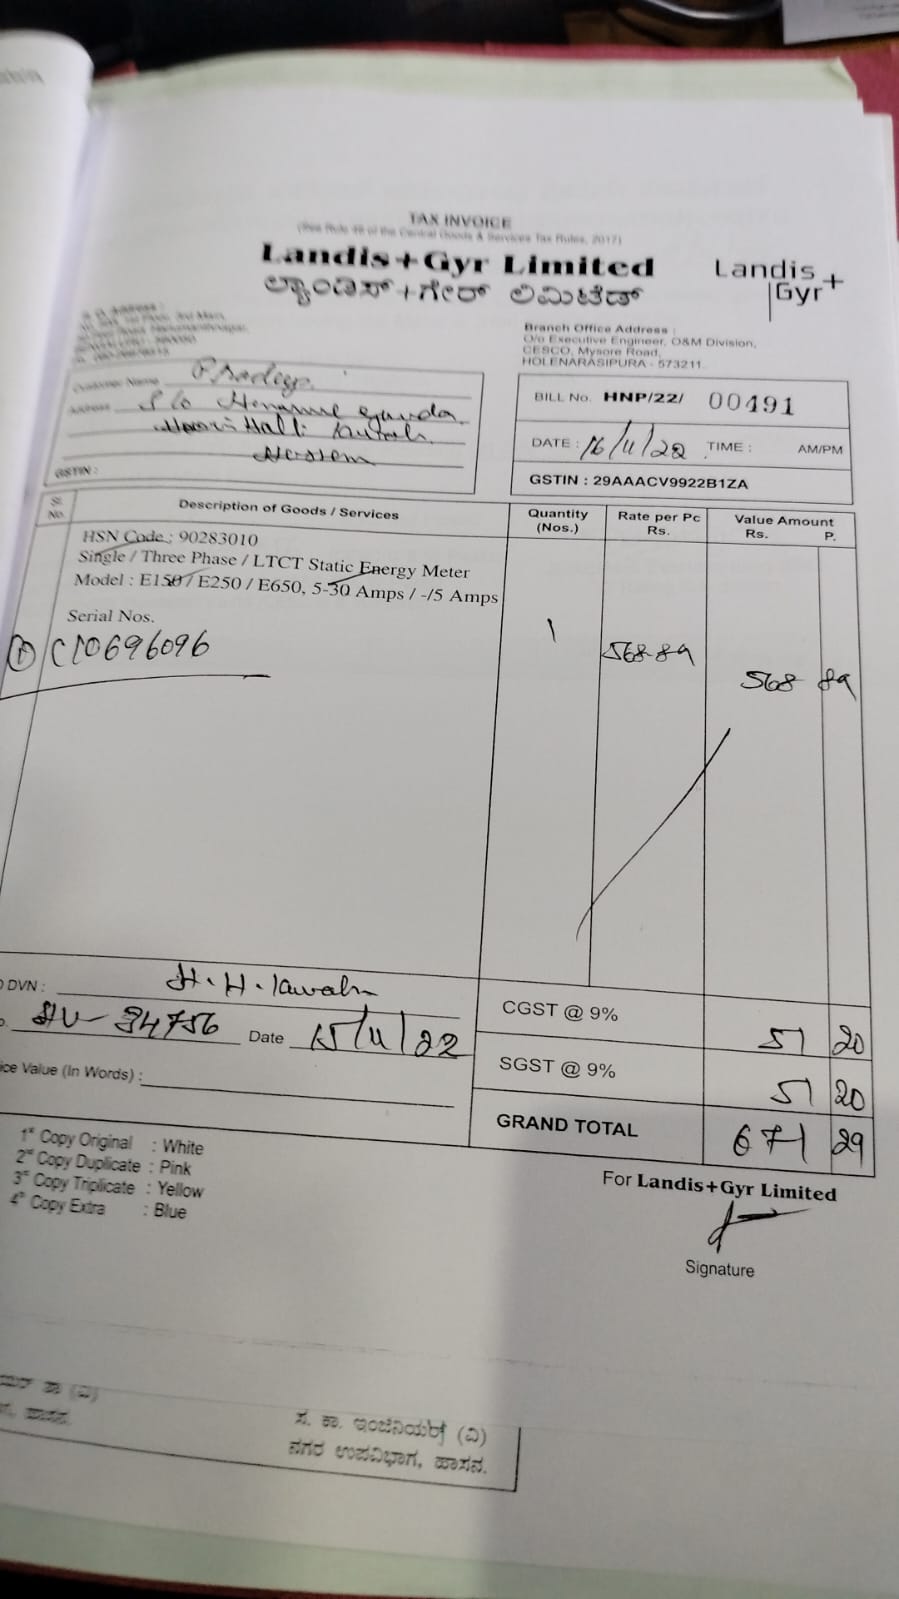 TAX INVOICE
(See Rule 46 of the Central Goods & Services Tax Rules, 2017)
Landis+Gyr Limited
ಲ್ಯಾಂಡಿಸ್+ಗೇರ್ ಲಿಮಿಟೆಡ್
Landis+
Gyr
Branch Office Address :
O/o Executive Engineer, O&M Division,
CESCO, Mysore Road,
HOLENARASIPURA - 573211.
Customer Name
Address S/o
GSTIN :
BILL No. HNP/22/ 00491
DATE : 16/11/22 TIME : AM/PM
GSTIN : 29AAACV9922B1ZA
Sl. No. Description of Goods / Services Quantity (Nos.) Rate per Pc Rs. Value Amount Rs. P.
HSN Code : 90283010
Single / Three Phase / LTCT Static Energy Meter
Model : E150 / E250 / E650, 5-30 Amps / -/5 Amps
Serial Nos.
① C10696096 1 568-89 568 89
DVN : H.H. Kavalu
34756 Date 15/11/22
CGST @ 9% 51 20
SGST @ 9% 51 20
ice Value (In Words) :
GRAND TOTAL 671 29
1st Copy Original : White
2nd Copy Duplicate : Pink
3rd Copy Triplicate : Yellow
4th Copy Extra : Blue
For Landis+Gyr Limited
Signature
ಸ. ಕಾ. ಇಂಜಿನಿಯರ್ (ವಿ)
ನಗರ ಉಪವಿಭಾಗ, ಹಾಸನ.